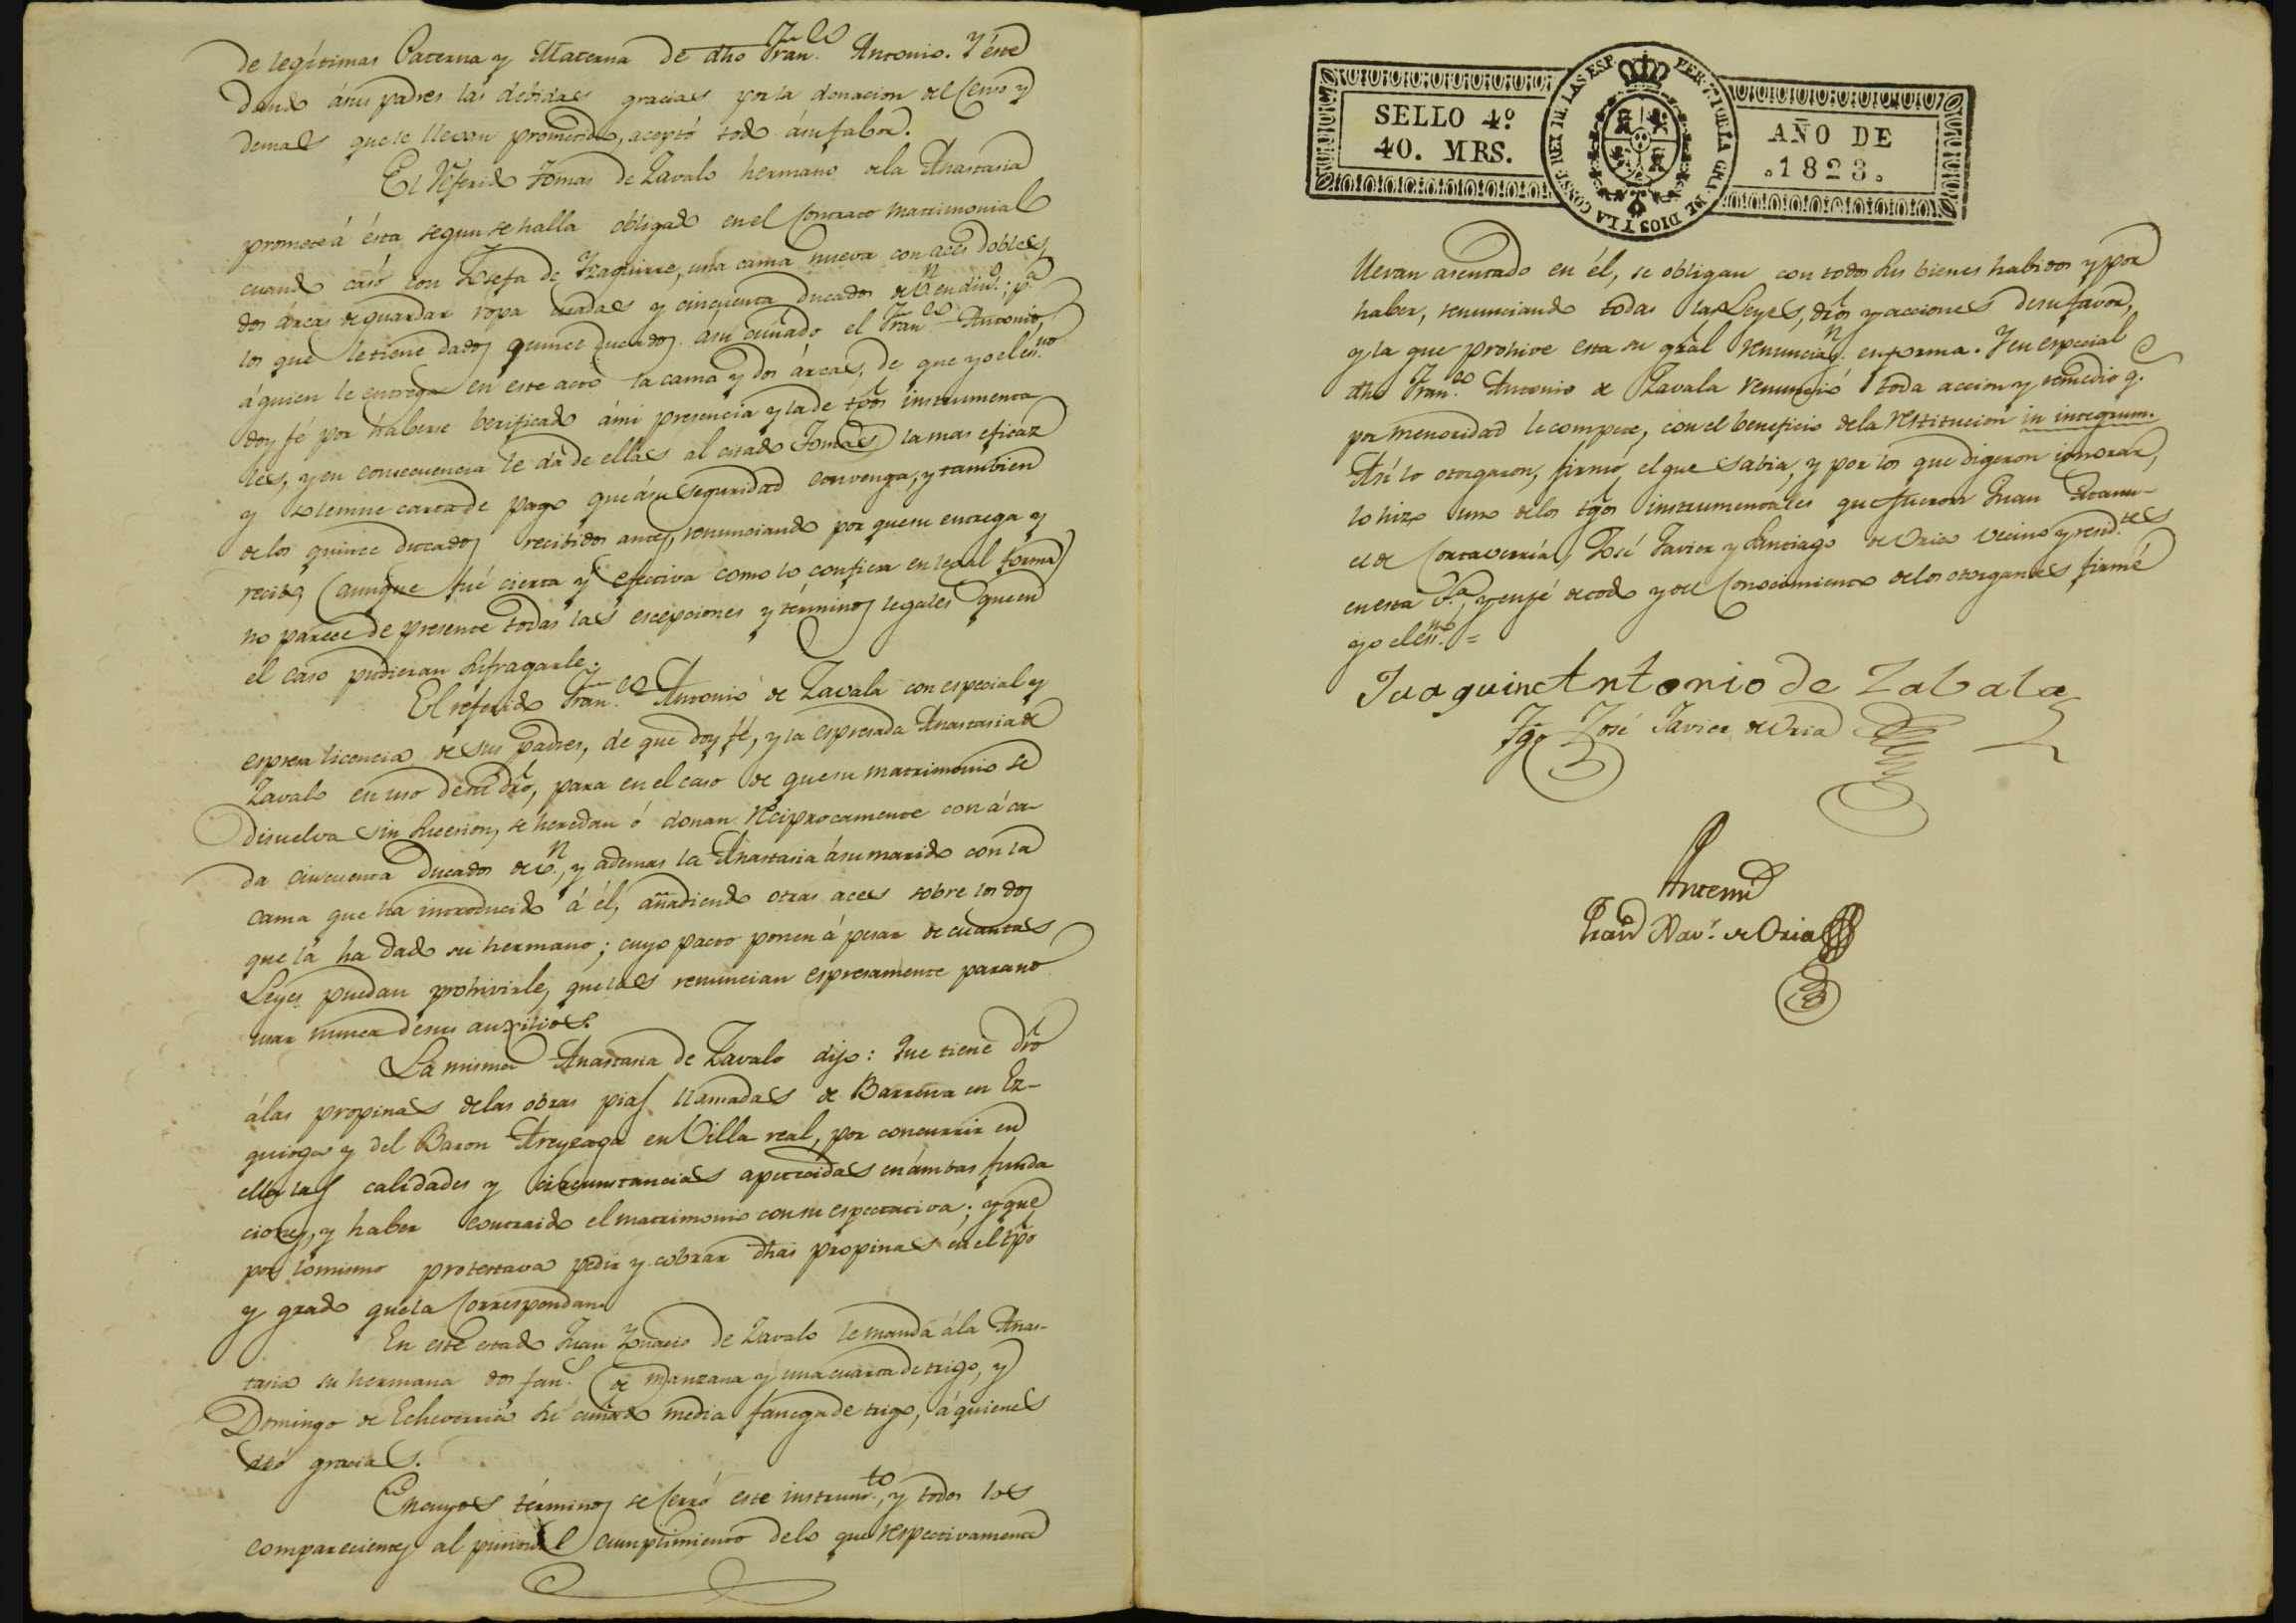 de legítimas Paterna y Materna de dho Fran.co Antonio. Y éste
dando ásus padres las debidas gracias por la donacion del Censo y
demas que le llevan prometido, aceptó todo ásu fabor.
El referido Tomas de Zavalo hermano dela Anastasia
promete á ésta segun se halla obligado en el Contrato matrimonial
cuando casó con Josefa de Yzaguirre, una cama nueva con aces dobles,
dos árcas de guardar ropa usadas y cincuenta ducados de v.n en din.o; p.a
los que le tiene dados quince ducados asu cuñado el Fran.co Antonio,
á quien le entrega en este acto la cama y dos árcas, de que yo el es.no
doy fé por háberse berificado ámi presencia y la de tgos instrumenta
les, y en consecuencia le dá de ellas al citado Tomas la mas eficaz
y solemne carta de pago que ásu seguridad convenga, y tambien
de los quince ducados recibidos antes, renunciando por que su entrega y
recibo (aunque fué cierta y efectiva como lo confiesa en legal forma)
no parece de presente todas las escepciones y términos legales que en
el caso pudieran sufragarle.
El referido Fran.co Antonio de Zavala con especial y
espresa licencia de sus padres, de que doy fé, y la espresada Anastasia de
Zavalo en uso de su dro, para en el caso de que su matrimonio se
disuelva sin sucesion, se heredan ó donan reciprocamente con á ca-
da cincuenta ducados de v.n, y ademas la Anastasia ásu marido con la
cama que ha introducido á él, añadiendo otras aces sobre los dos
que la ha dado su hermano; cuyo pacto ponen á pesar de cuantas
Leyes puedan prohivirle, que las renuncian espresamente para no
usar nunca de sus auxilios.
La misma Anastasia de Zavalo dijo: Que tiene dro
álas propinas delas obras pias llamadas de Barrena en Ez-
quioga y del Baron Areyzaga en Villa real, por concurrir en
ella las calidades y circunstancias apetecidas en ámbas funda
ciones, y haber contraido el matrimonio con su espectativa; y que
por lo mismo protestava pedir y cobrar dhas propinas en el tpo
y grado que la Correspondan.
En este estado Juan Ygnacio de Zavalo le manda ála Anas-
tasia su hermana dos fan.s de manzana y una cuarta de trigo, y
Domingo de Echeverria su cuñado media fanega de trigo, á quienes
dió gracias.
En cuyos términos se Cerró este instrum.to, y todos los
comparecientes al puntual cumplimiento de lo que respectivamente
SELLO 4º
40. MRS.
AÑO DE
.1823.
llevan asentado en él, se obligan con todos sus bienes habidos y por
haber, renunciando todas las Leyes, dros y acciones de su favor,
y la que prohive esta su gral renuncia.n en forma. Y en especial
dho Fran.co Antonio de Zavala renunció toda accion y remedio q.e
por menoridad le compete, con el beneficio dela restitucion in integrum.
Así lo otorgaron, firmó el que sabia, y por los que digeron ignorar,
lo hizo uno delos tgos instrumentales que fueron Juan Manu-
el de Cortaverría, José Javier y Santiago de Oria vecino y resid.tes
en esta V.a, y en fé de todo y del Conocimiento delos otorgantes firmé
yo el es.no =
Juaquin Antonio de Zabala
Tgo José Javier de Oria
Antemi